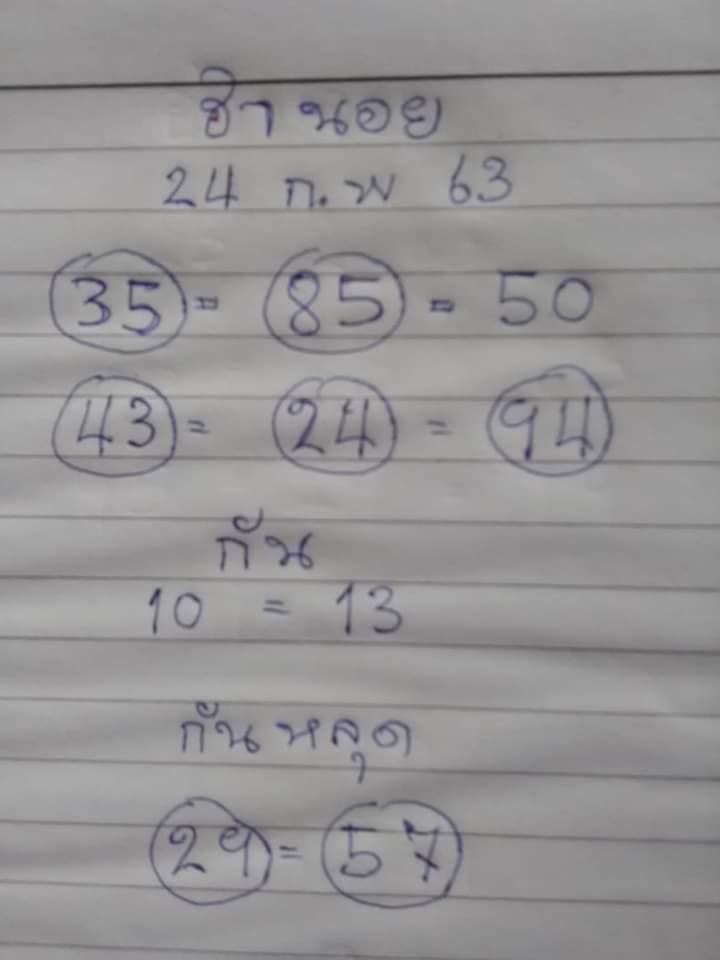 ฮานอย
24 ก.พ 63
35 = 85 = 50
43 = 24 = 94
กัน
10 = 13
กันหลุด
29 = 57